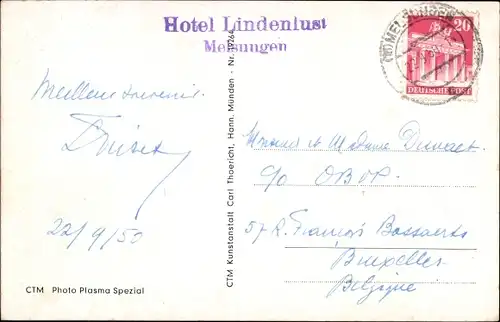 Hotel Lindenlust
Melsungen
20
DEUTSCHE POST
Meilleur souvenir
22/9/50
CTM Photo Plasma Spezial
CTM Kunstanstalt Carl Thoericht, Hann. Münden - Nr. 19264
Monsieur et Madame
c/o OBVP.
57 R. François Bossaerts
Bruxelles
Belgique